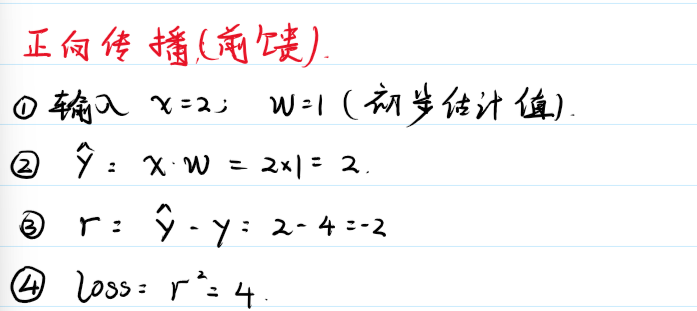 正向传播(前馈).
① 输入 x=2; w=1 (初步估计值).
② ŷ = x·w = 2×1 = 2.
③ r = ŷ - y = 2-4=-2
④ loss = r²= 4.